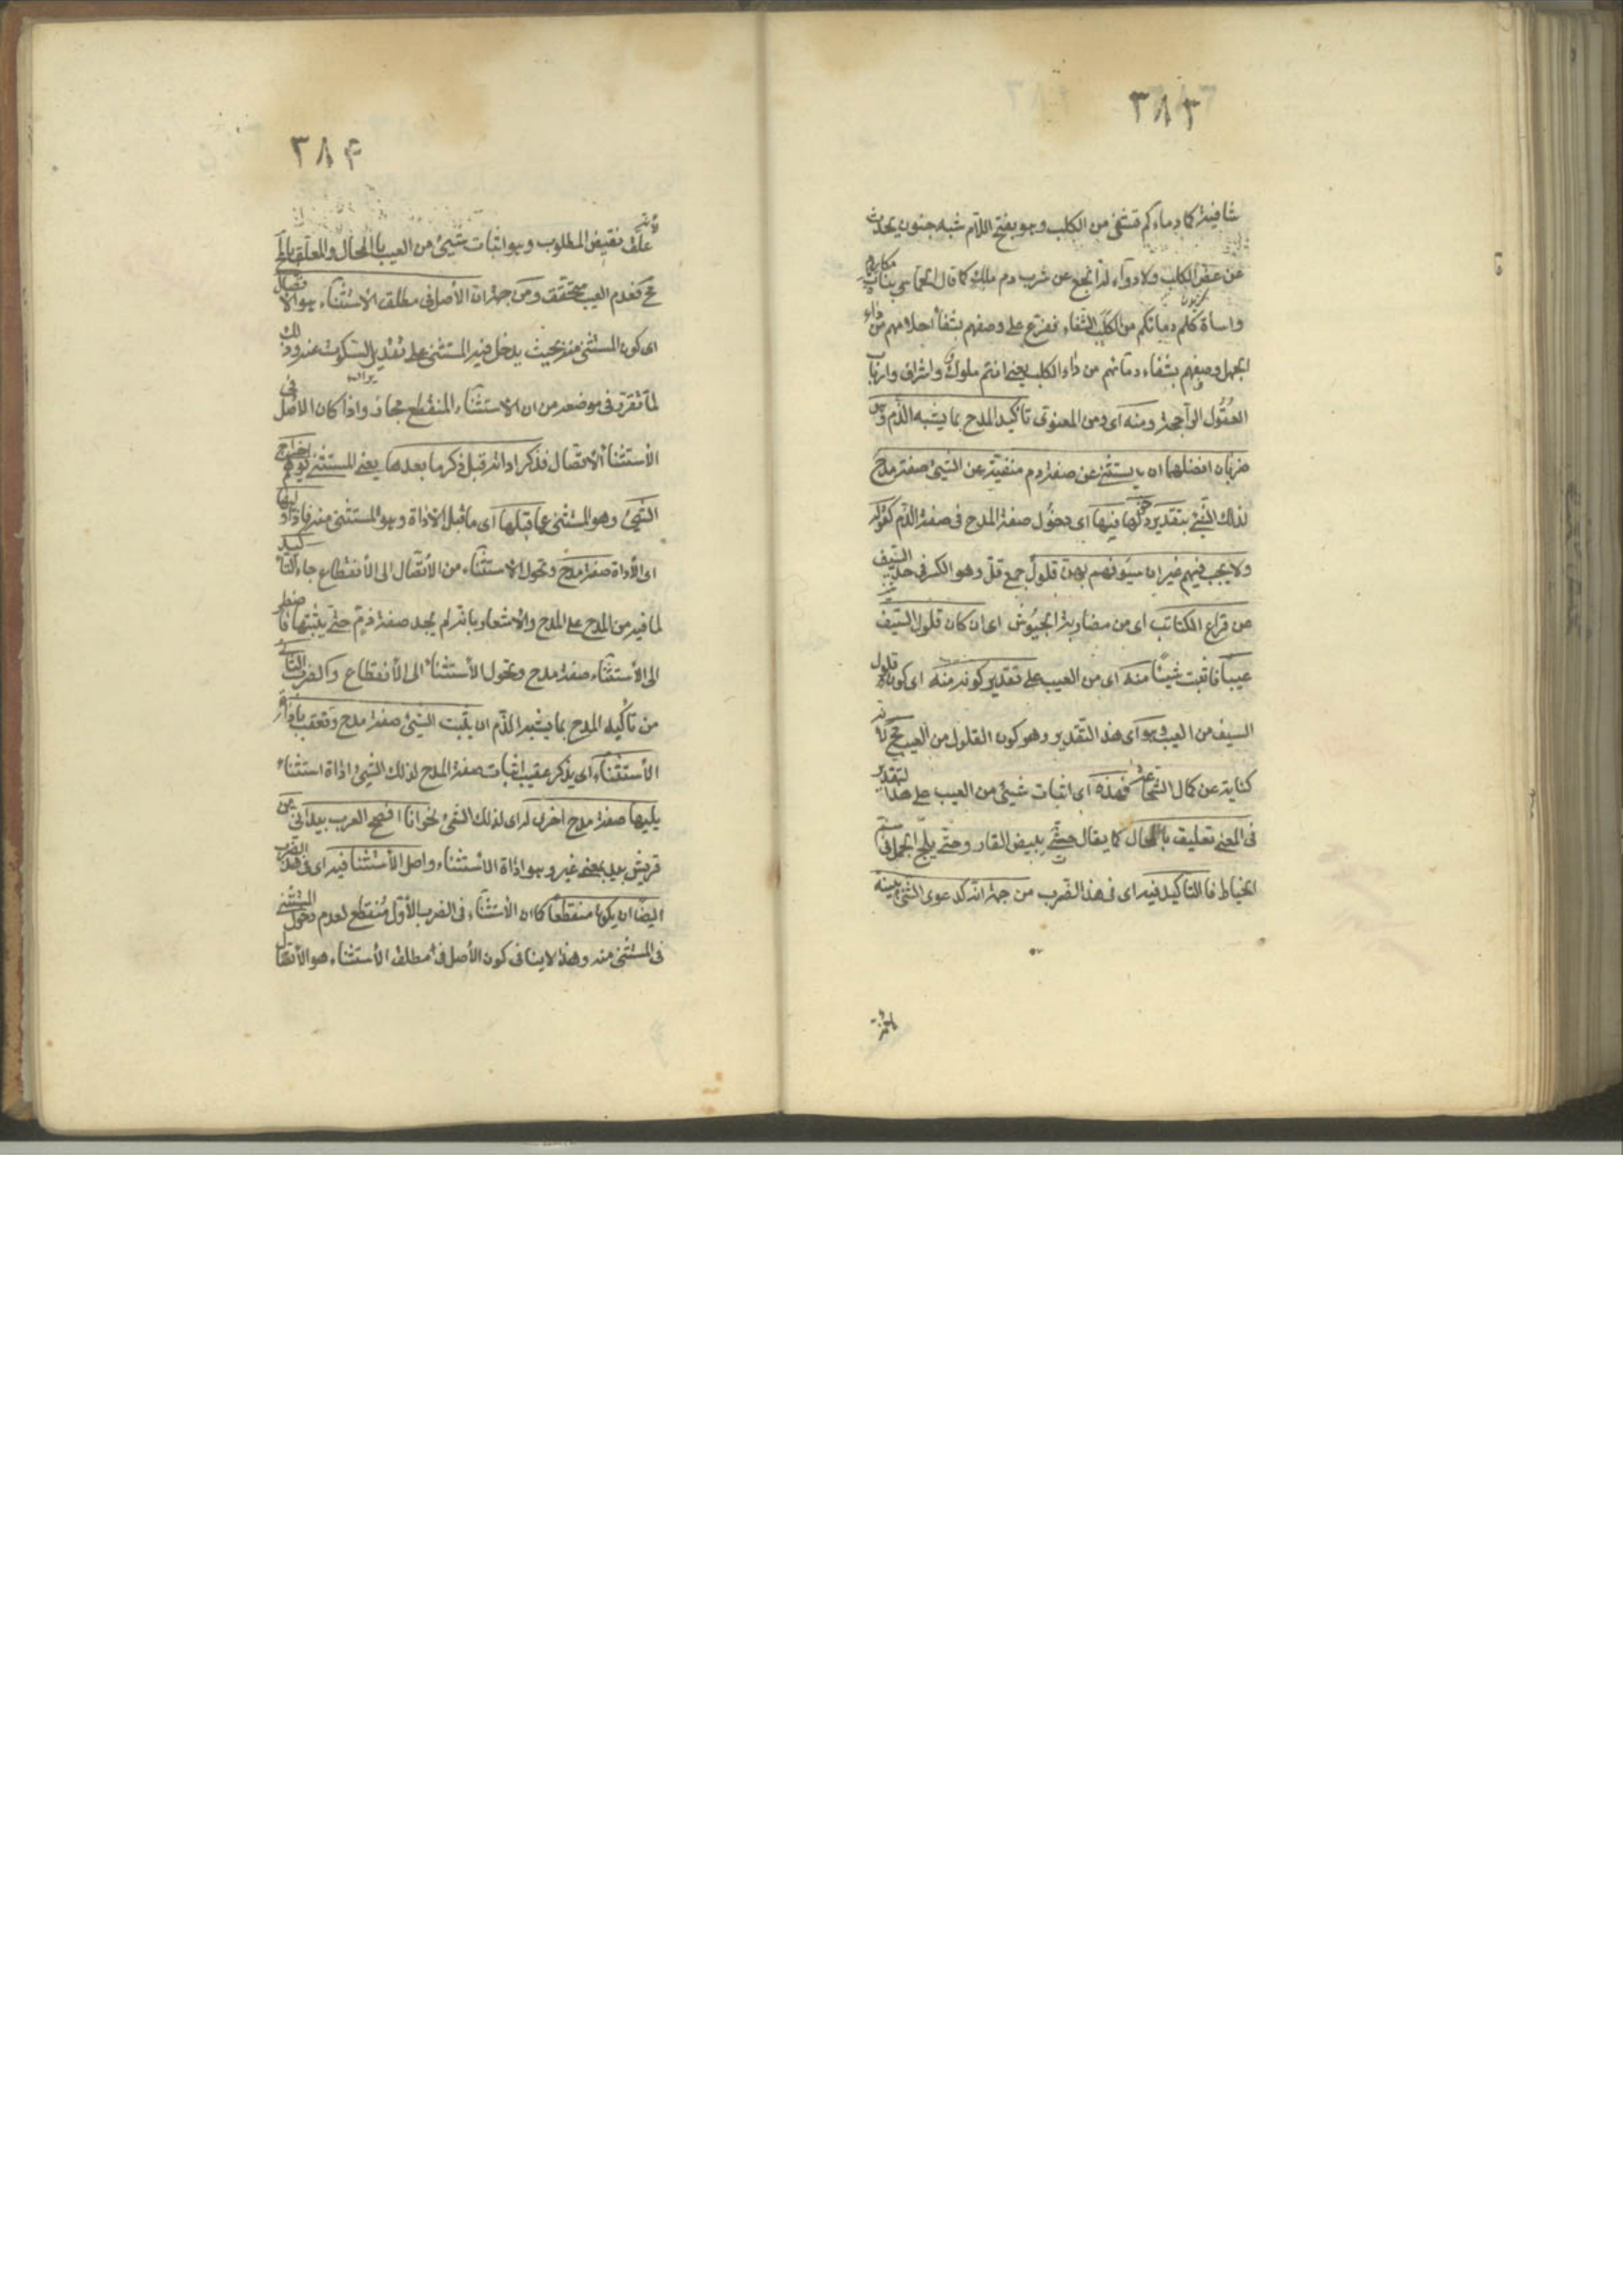 ٣٨٣
شافية كما دماءكم تشفى من الكلب وهو بفتح اللام شبه جنون يحدث
من عض الكلب ولا دواء له انجع من شرب دم ملك كما قال الحماسى بناة مكارم
واساة كلم دمائكم من الكلب الشفاء ففرع على وصفهم بشفأ احلامهم من داء
الجهل وصفهم بشفاء دمائهم من داء الكلب يعنى انتم ملوك واشراف وارباب
العقول الراجحة ومنه اى ومن المعنوى تاكيد المدح بما يشبه الذم وهو
ضربان افضلهما ان يستثنى من صفة ذم منفية عن الشيئ صفة مدح
لذلك الشيئ بتقدير دخولها فيها اى دخول صفة المدح فى صفة الذم كقوله
ولا عيب فيهم غير ان سيوفهم بهن فلول جمع فل وهو الكسر فى حد السيف
من قراع الكتائب اى من مضاربة الجيوش اى ان كان فلول السيف
عيبا فاثبت شيئا منه اى من العيب على تقدير كونه منه اى كون فلول
السيف من العيب وهو اى هذ التقدير وهو كون الفلول من العيب مح لانه
كناية عن كمال الشجاعة فهذه اى اثبات شيئ من العيب على هذا التقدير
فى المعنى تعليق بالمحال كما يقال حتى يبيض القار وحتى يلج الجمل فى سم
الخياط فا التاكيد فيه اى فى هذ الضرب من جهة انه كدعوى الشئ ببينة
لانه
٣٨۴
لانه
علق نقيض المطلوب وهو اثبات شيئ من العيب با المحال والمعلق بالمح
مح فعدم العيب محقق ومن جهة ان الأصل فى مطلق الاستثناء هو الاتصال
اى كون المستثنى منه بحيث يدخل فيه المستثنى على تقدير السكوت عنه وذلك
لما تقرر فى موضعه من ان الاستثناء المنقطع مجاز واذا كان الاصل فى
الأستثنأ الأتصال فذكر اداته قبل ذكر ما بعدها يعنى المستثنى يوهم اخراج
الشيئ وهو المستثنى مما قبلها اى ما قبل الاداة وهو المستثنى منه فاذا وليها
اى الأداة صفة مدح وتحول الاستثناء من الأتصال الى الأنقطاع جاء التأكيد
لما فيه من المدح على المدح والأشعار بانه لم يجد صفة ذم حتى يثبتها فاضطر
الى الأستثناء صفة مدح وتحول الأستثنأ الى الأنقطاع والضرب الثانى
من تأكيد المدح بما يشبه الذم ان يثبت الشيئ صفة مدح وتعقب باداة
الأستثناء اى يذكر عقيب اثبات صفة المدح لذلك الشيئ اداة استثناء
يليها صفة مدح اخرى له اى لذلك الشيئ نحو انا افصح العرب بيد انى من
قريش بيد بمعنى غير وهو اداة الاستثناء واصل الأستثنا فيه اى فى هذ الضرب
ايضا ان يكون منقطعا كما ان الأستثناء فى الضرب الأول منقطع لعدم دخول المستثنى
فى المستثنى منه وهذ لا ينافى كون الأصل فى مطلق الأستثناء هو الأتصال